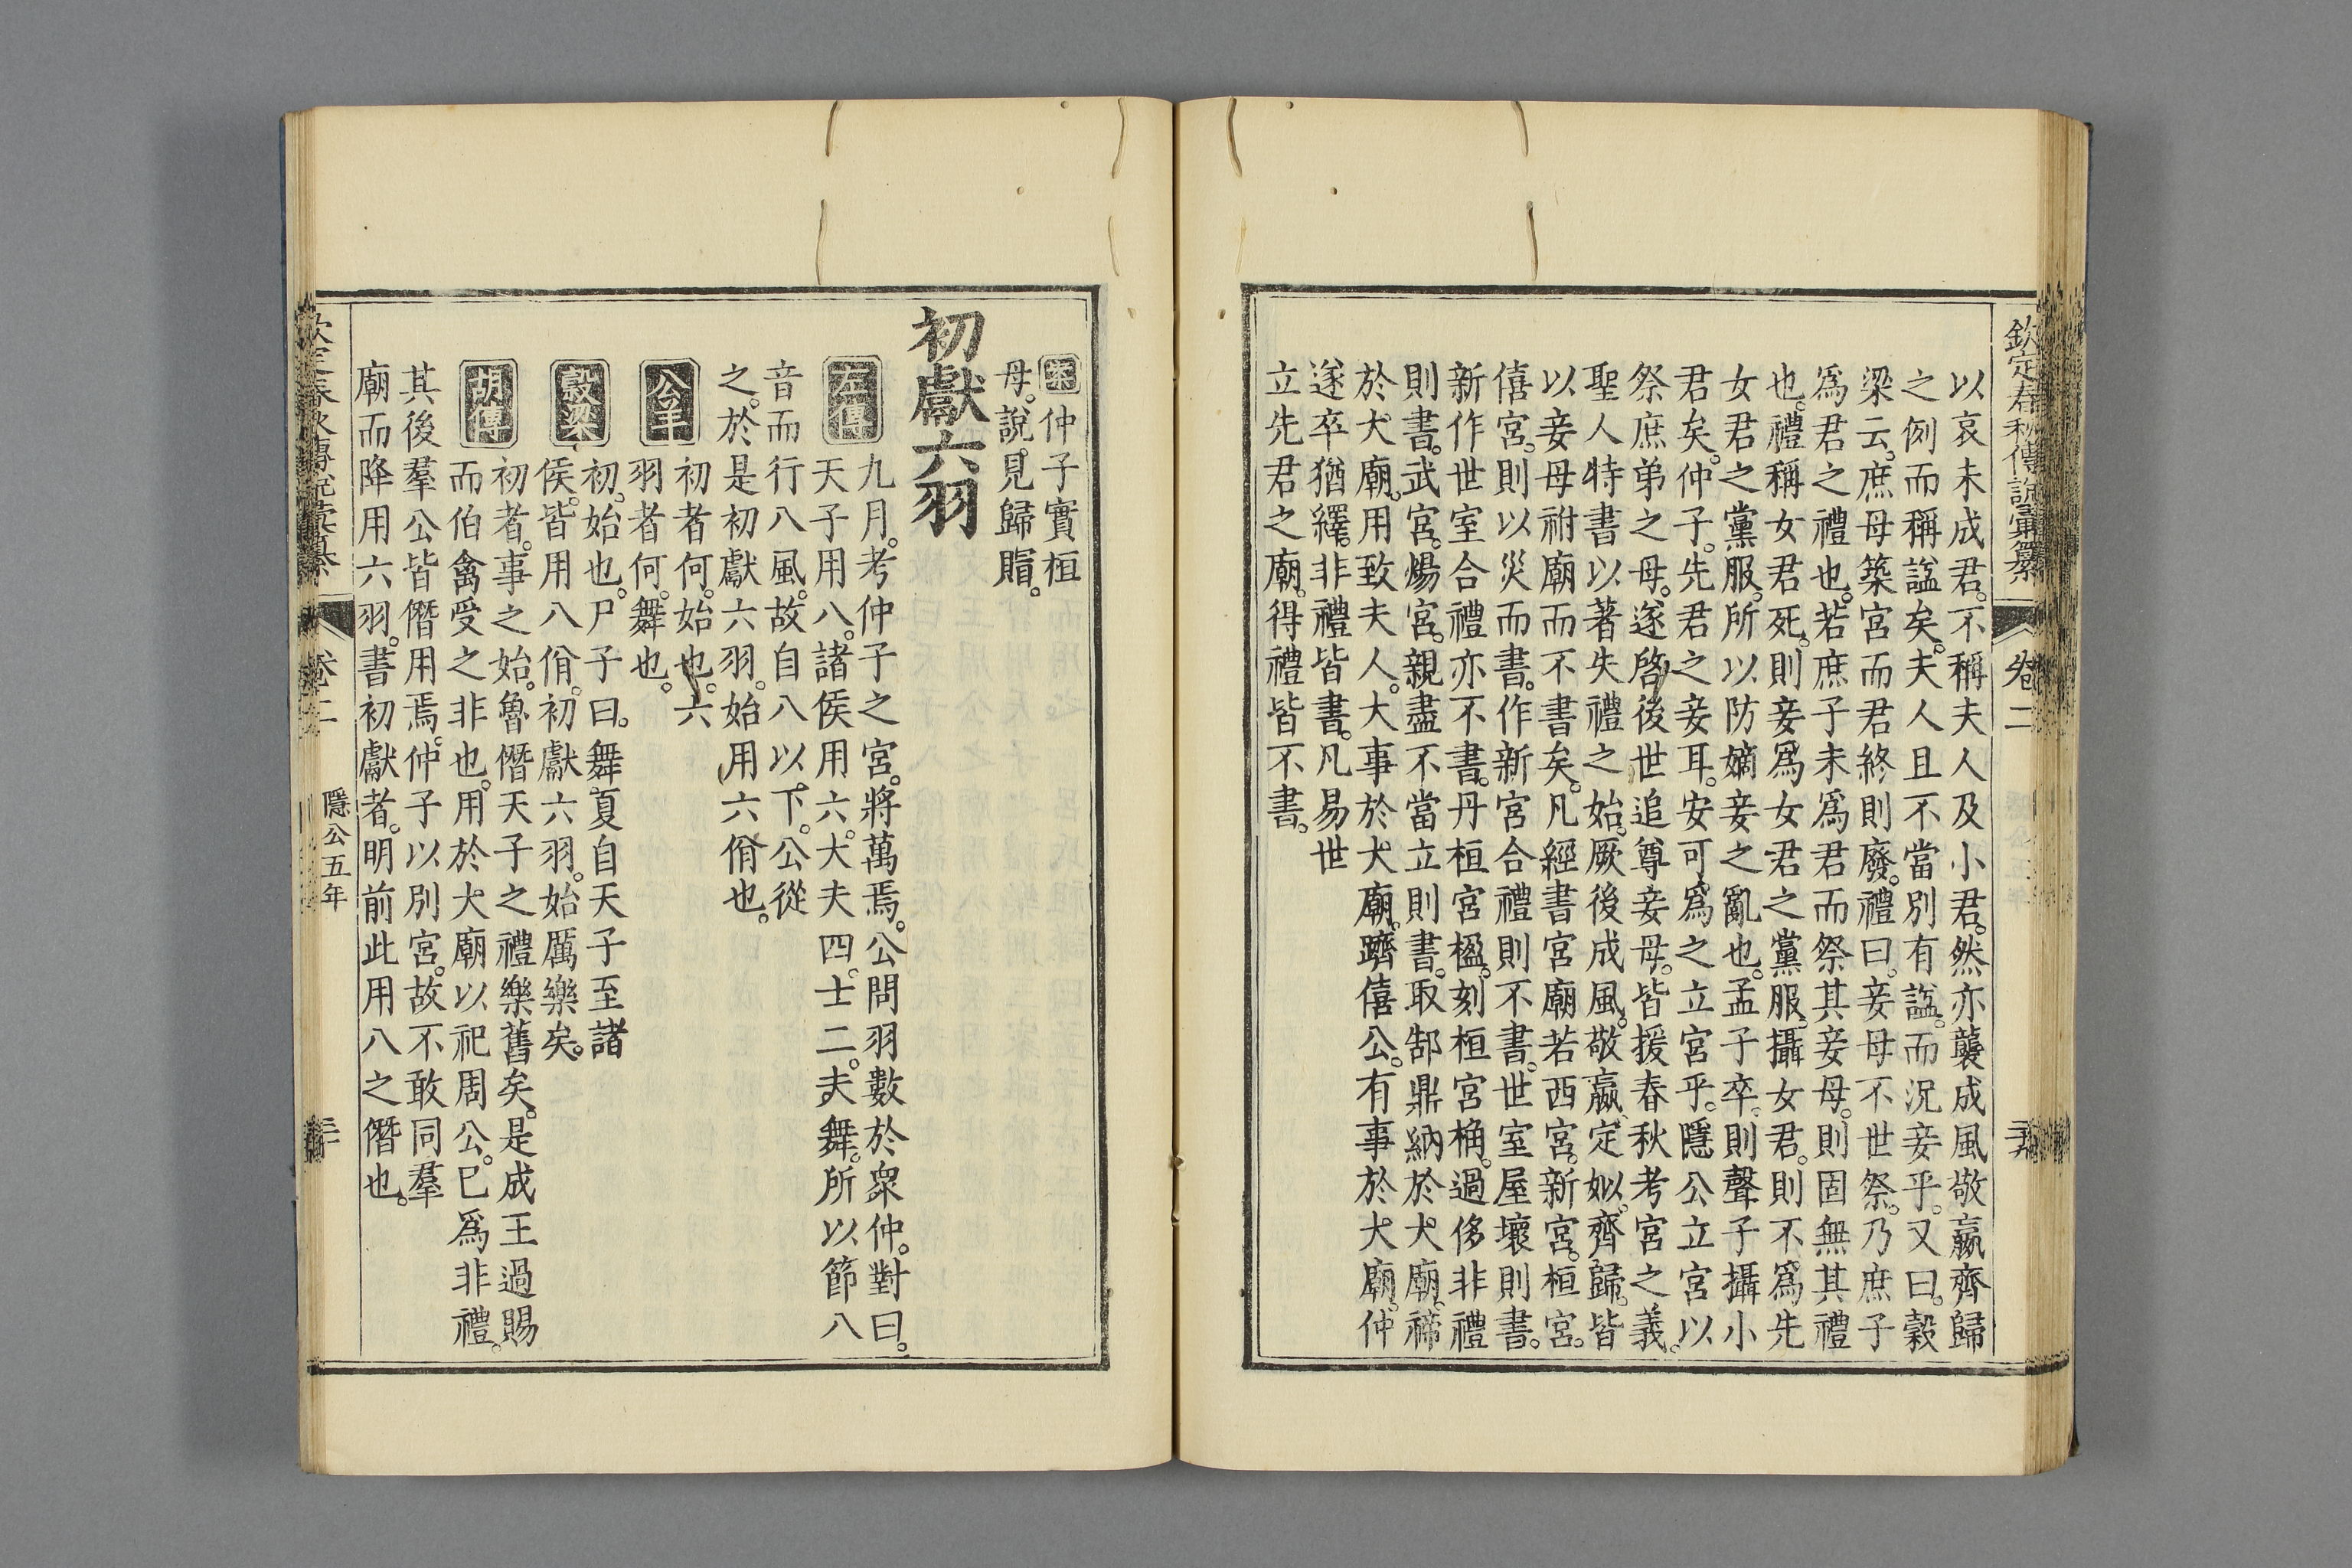 欽定春秋傳說彙纂 卷二
以哀未成君。不稱夫人及小君。然亦襲成風敬嬴齊歸
之例而稱諡矣。夫人且不當別有諡。而況妾乎。又曰。穀
梁云。庶母築宮而君終則廢。禮曰。妾母不世祭。乃庶子
爲君之禮也。若庶子未爲君而祭其妾母。則固無其禮
也。禮稱女君死。則妾爲女君之黨服。攝女君。則不爲先
女君之黨服。所以防嫡妾之亂也。孟子卒。則聲子攝小
君矣。仲子。先君之妾耳。安可爲之立宮乎。隱公立宮以
祭庶弟之母。遂啓後世追尊妾母。皆援春秋考宮之義。
聖人特書以著失禮之始。厥後成風。敬嬴。定姒。齊歸。皆
以妾母祔廟而不書矣。凡經書宮廟若西宮。新宮。桓宮。
僖宮。則以災而書。作新宮合禮則不書。世室屋壞則書。
新作世室合禮亦不書。丹桓宮楹。刻桓宮桷。過侈非禮
則書。武宮。煬宮。親盡不當立則書。取郜鼎納於大廟。禘
於大廟。用致夫人。大事於大廟。躋僖公。有事於大廟。仲
遂卒猶繹。非禮皆書。凡易世
立先君之廟。得禮皆不書。
案 仲子實桓
母。說見歸賵。
初獻六羽
左傳 九月。考仲子之宮。將萬焉。公問羽數於衆仲。對曰。
天子用八。諸侯用六。大夫四。士二。夫舞。所以節八
音而行八風。故自八以下。公從
之。於是初獻六羽。始用六佾也。
公羊 初者何。始也。六
羽者何。舞也。
穀梁 初。始也。尸子曰。舞夏自天子至諸
侯。皆用八佾。初獻六羽。始厲樂矣。
胡傳 初者。事之始。魯僭天子之禮樂舊矣。是成王過賜
而伯禽受之非也。用於大廟以祀周公。已爲非禮。
其後羣公皆僭用焉。仲子以別宮。故不敢同羣
廟而降用六羽。書初獻者。明前此用八之僭也。
欽定春秋傳說彙纂 卷二 隱公五年